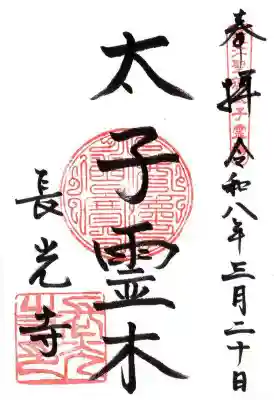 奉拝 令和八年三月二十日
太子霊木
長光寺